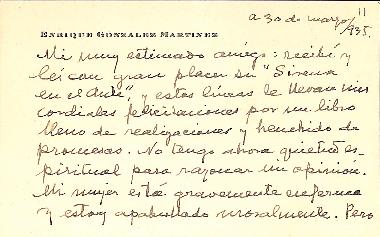 a 30 de marzo/11
935.
ENRIQUE GONZALEZ MARTINEZ
Mi muy estimado amigo: recibí y
leí con gran placer su "Sirena
en el Aula", y estas líneas le llevan mis
cordiales felicitaciones por un libro
lleno de realizaciones y henchido de
promesas. No tengo ahora quietud es-
piritual para razonar mi opinión.
Mi mujer está gravemente enferma
y estoy apabullado moralmente. Pero